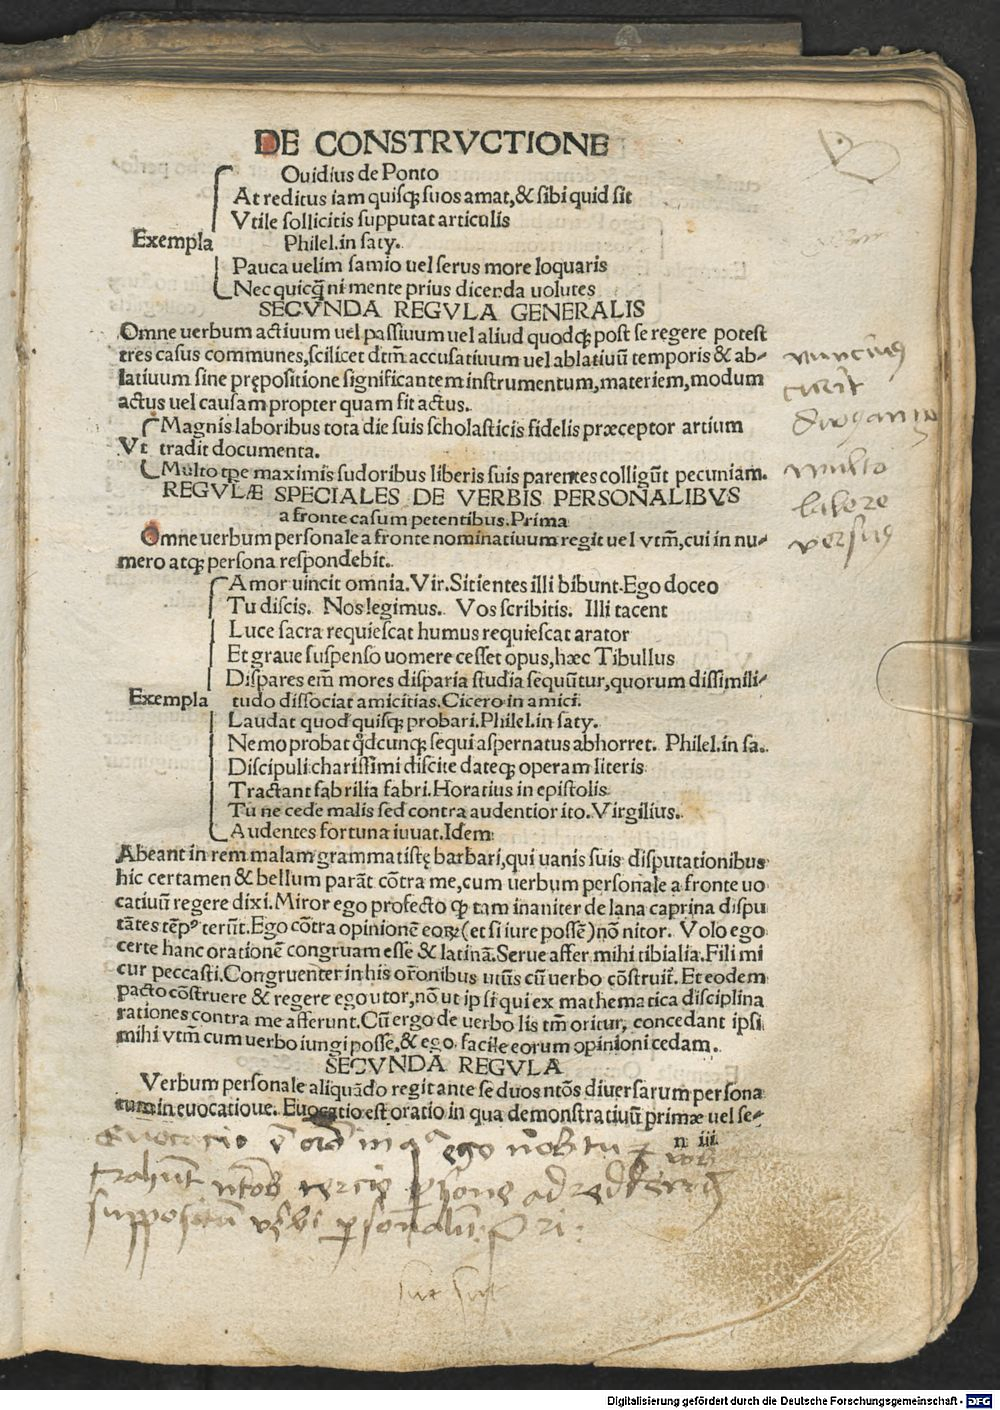 DE CONSTRVCTIONE
Ouidius de Ponto
At reditus iam quisqꝫ suos amat,& sibi quid sit
Vtile sollicitis supputat articulis
Exempla
Philel.in saty.
Pauca uelim samio uel serus more loquaris
Nec quicq̄ ni mente prius dicenda uolutes
SECVNDA REGVLA GENERALIS
Omne uerbum actiuum uel passiuum uel aliud quodqꝫ post se regere potest
tres casus communes,scilicet dtm̄ accusatiuum uel ablatiuū temporis & ab-
latiuum sine prępositione significantem instrumentum,materiem,modum
actus uel causam propter quam fit actus.
Magnis laboribus tota die suis scholasticis fidelis præceptor artium
Vt tradit documenta.
Multo tp̄e maximis sudoribus liberis suis parentes colligūt pecuniam.
REGVLÆ SPECIALES DE VERBIS PERSONALIBVS
a fronte casum petentibus.Prima
Omne uerbum personale a fronte nominatiuum regit uel vtm̄,cui in nu-
mero atqꝫ persona respondebit.
Amor uincit omnia.Vir.Sitientes illi bibunt.Ego doceo
Tu discis. Nos legimus. Vos scribitis. Illi tacent
Luce sacra requiescat humus requiescat arator
Et graue suspenso uomere cesset opus,hæc Tibullus
Dispares em̄ mores disparia studia sequūtur,quorum dissimili-
Exempla tudo dissociat amicitias.Cicero in amici.
Laudat quod quisqꝫ probari.Philel.in saty.
Nemo probat qđcunqꝫ sequi aspernatus abhorret. Philel.in sa.
Discipuli charissimi discite dateqꝫ operam literis
Tractant fabrilia fabri.Horatius in epistolis
Tu ne cede malis sed contra audentior ito.Virgilius.
Audentes fortuna iuuat.Idem
Abeant in rem malam grammatistę barbari,qui uanis suis disputationibus
hic certamen & bellum parāt cōtra me,cum uerbum personale a fronte uo
catiuū regere dixi.Miror ego profecto qꝫ tam inaniter de lana caprina dispu
tātes tēpꝰ terūt.Ego cōtra opinionē eoꝝ(et si iure possē)nō nitor. Volo ego
certe hanc orationē congruam esse & latinā.Serue affer mihi tibialia.Fili mi
cur peccasti.Congruenter in his or̄onibus utūs cū uerbo cōstruit̄. Et eodem
pacto cōstruere & regere ego utor,nō ut ipsi qui ex mathematica disciplina
rationes contra me afferunt.Cū ergo de uerbo lis tm̄ oritur, concedant ipsi
mihi vtm̄ cum uerbo iungi posse,& ego facile eorum opinioni cedam.
SECVNDA REGVLA
Verbum personale aliquādo regit ante se duos ntōs diuersarum persona
rum in euocatione. Euocatio est oratio in qua demonstratiuū primæ uel se-
n iii
multo
labore
versus
Digitalisierung gefördert durch die Deutsche Forschungsgemeinschaft - DFG